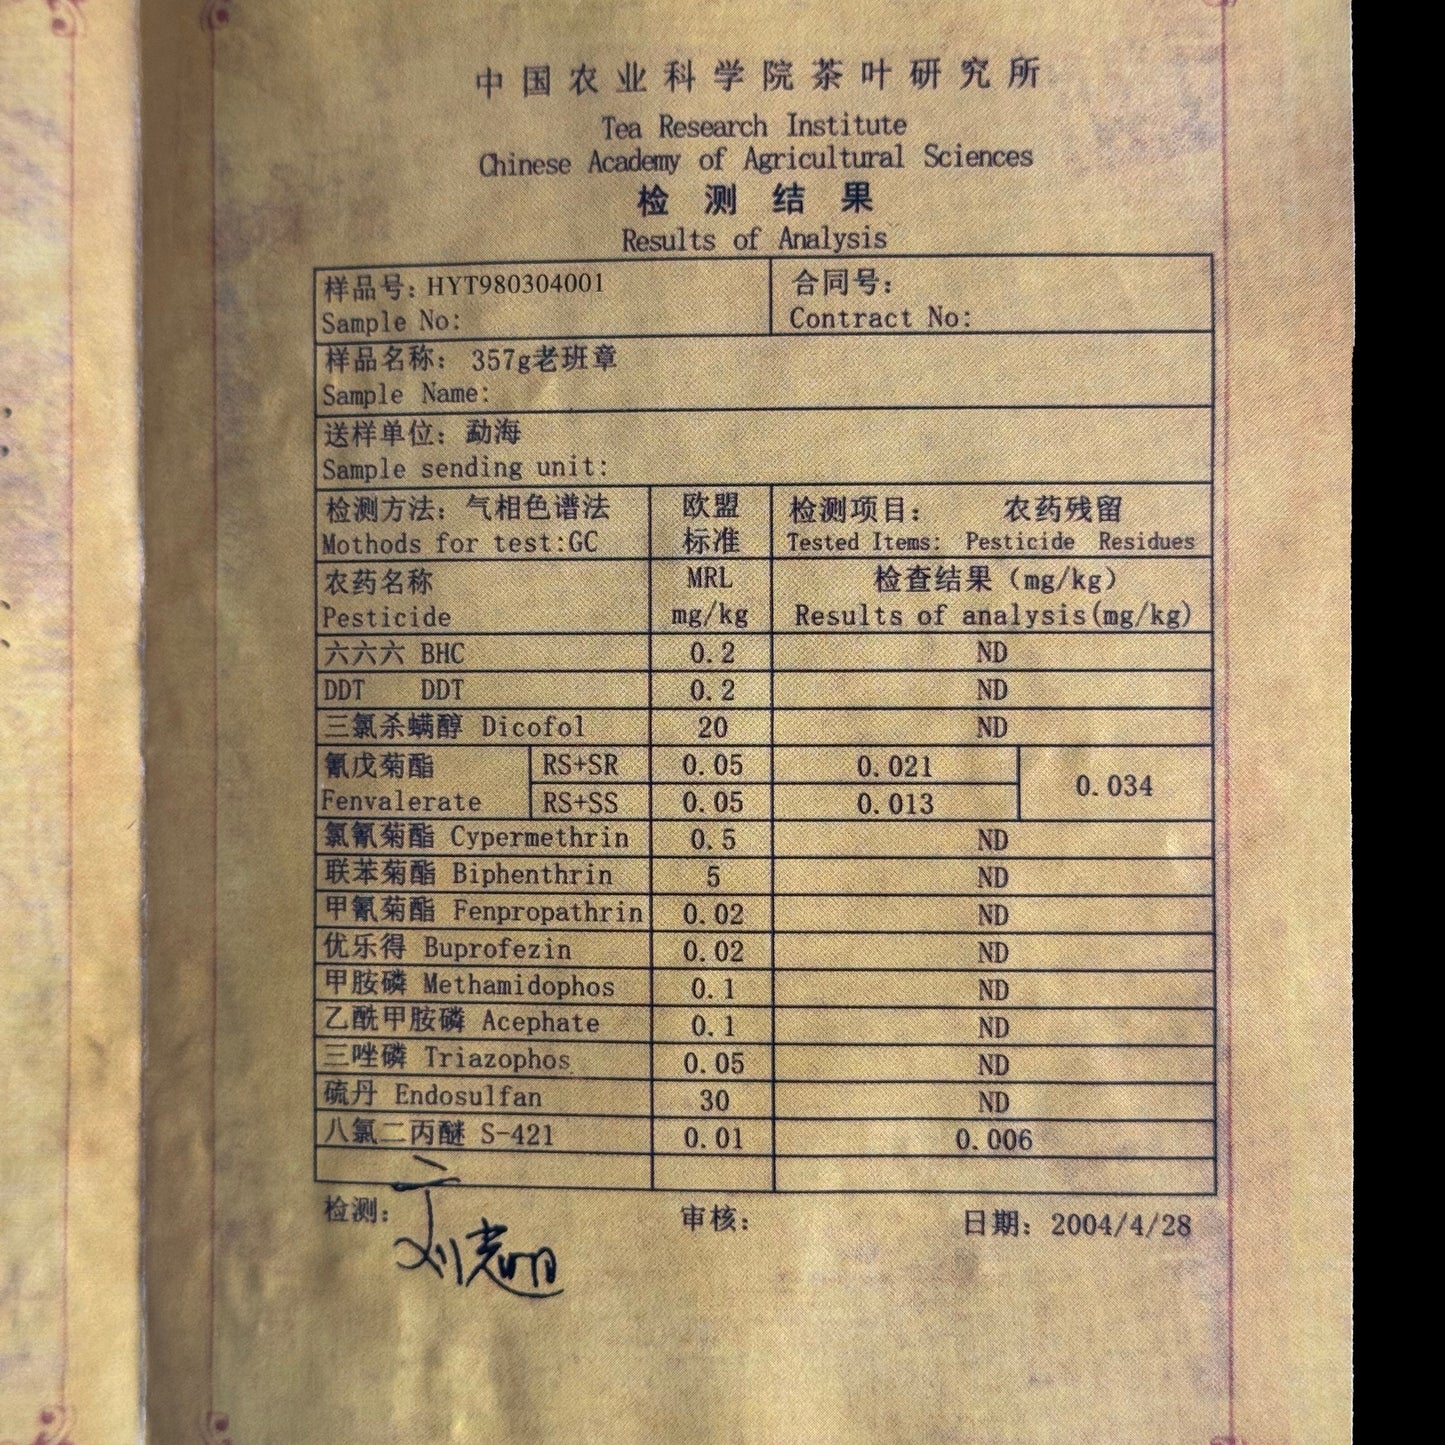 中国农业科学院茶叶研究所
Tea Research Institute
Chinese Academy of Agricultural Sciences
检测结果
Results of Analysis
样品号：HYT980304001 合同号：
Sample No: Contract No:
样品名称： 357g老班章
Sample Name:
送样单位：勐海
Sample sending unit:
检测方法：气相色谱法 欧盟 检测项目： 农药残留
Mothods for test:GC 标准 Tested Items: Pesticide Residues
农药名称 MRL 检查结果（mg/kg）
Pesticide mg/kg Results of analysis(mg/kg)
六六六 BHC 0.2 ND
DDT DDT 0.2 ND
三氯杀螨醇 Dicofol 20 ND
氰戊菊酯 RS+SR 0.05 0.021 0.034
Fenvalerate RS+SS 0.05 0.013
氯氰菊酯 Cypermethrin 0.5 ND
联苯菊酯 Biphenthrin 5 ND
甲氰菊酯 Fenpropathrin 0.02 ND
优乐得 Buprofezin 0.02 ND
甲胺磷 Methamidophos 0.1 ND
乙酰甲胺磷 Acephate 0.1 ND
三唑磷 Triazophos 0.05 ND
硫丹 Endosulfan 30 ND
八氯二丙醚 S-421 0.01 0.006
检测： 审核： 日期：2004/4/28